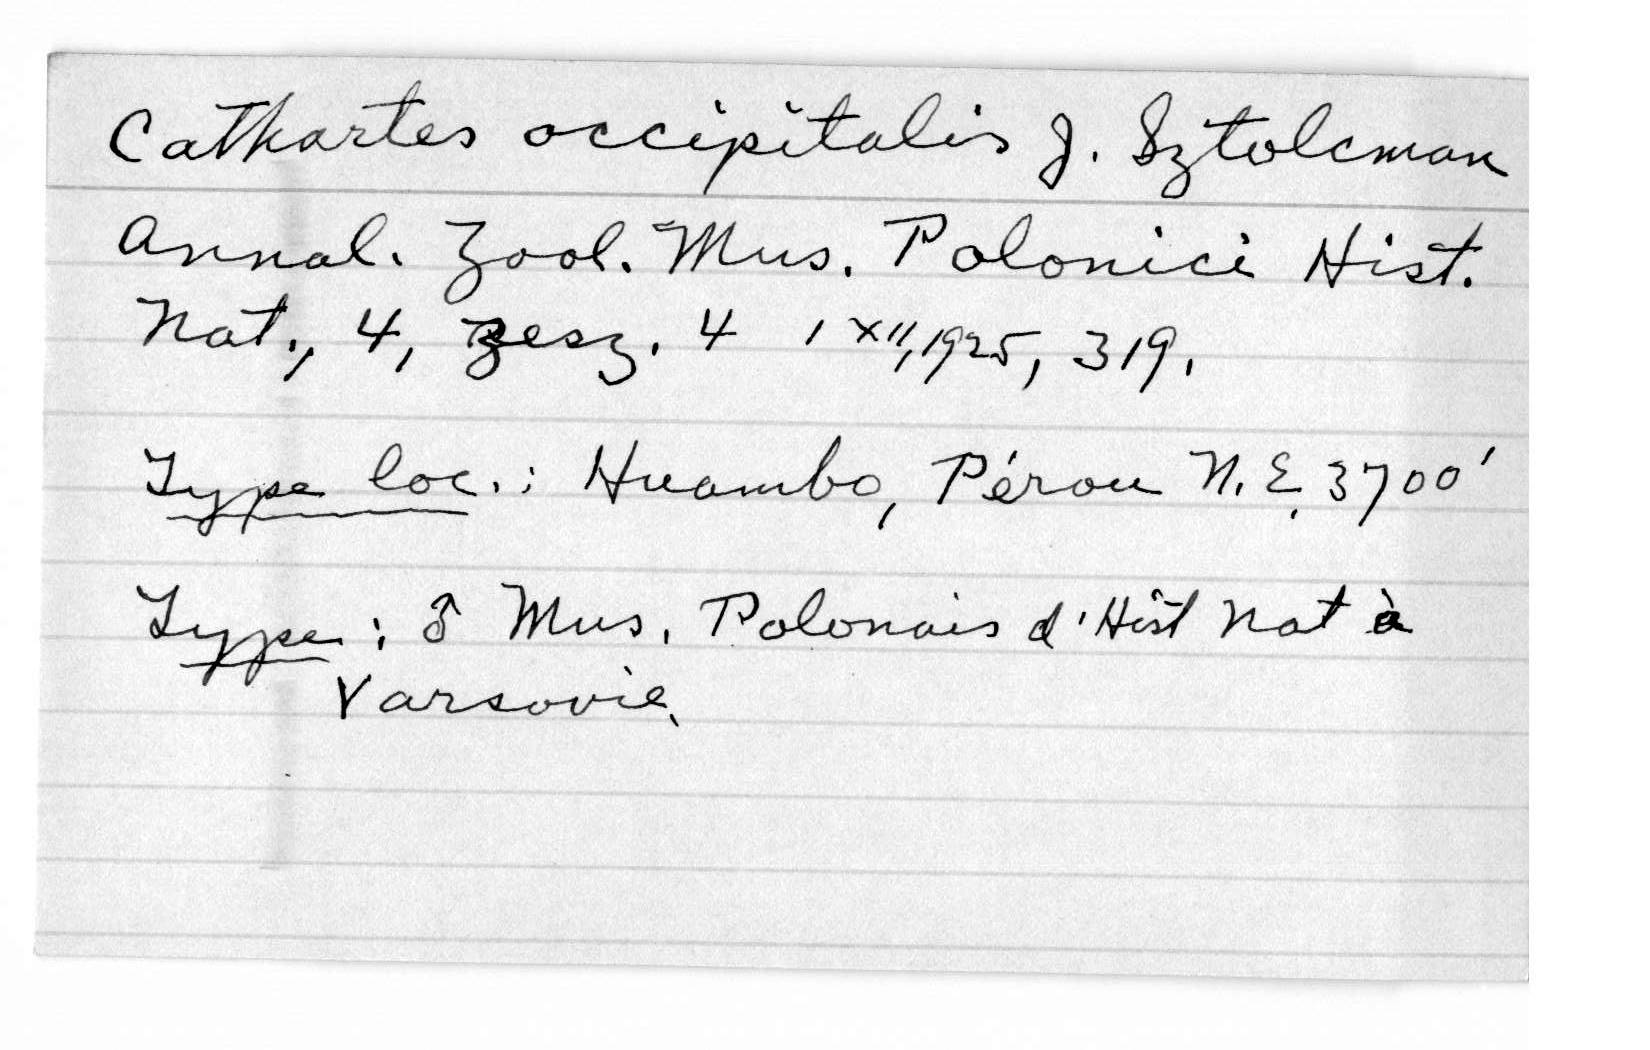 Cathartes occipitalis J. Sztolcman
Annal. Zool. Mus. Polonici Hist.
Nat., 4, zesz. 4 1 XII, 1925, 319.
Type loc.: Huambo, Pérou N.E. 3700'
Type: ♂ Mus. Polonais d'Hist Nat à
Varsovie.